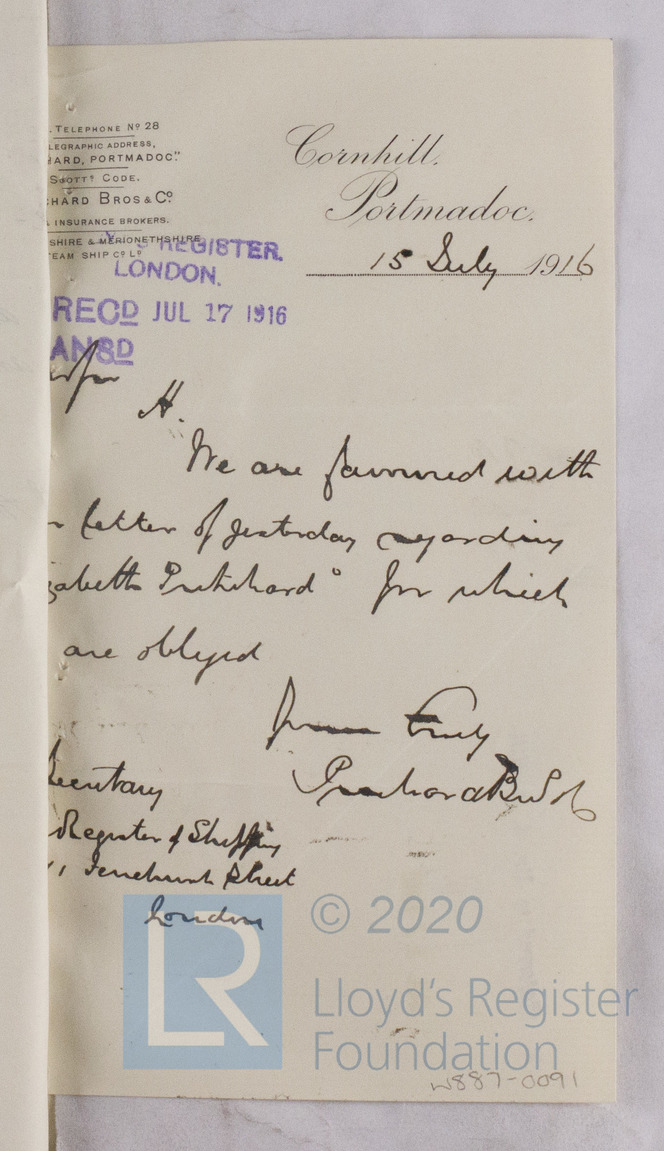 . TELEPHONE Nº 28
LEGRAPHIC ADDRESS,
HARD, PORTMADOC."
SCOTTS CODE.
CHARD BROS & Cº
& INSURANCE BROKERS.
SHIRE & MERIONETHSHIRE
TEAM SHIP Cº Lᴰ
Cornhill,
Portmadoc.
15 July 1916
REGISTER.
LONDON.
RECD JUL 17 1916
ANSD
We are favoured with
letter of yesterday regarding
zabeth Pritchard" for which
are obliged
Yours truly
Pritchard Bros & Co
Secretary
Register of Shipping
Fenchurch Street
London
© 2020
LR
Lloyd's Register
Foundation
W887-0091